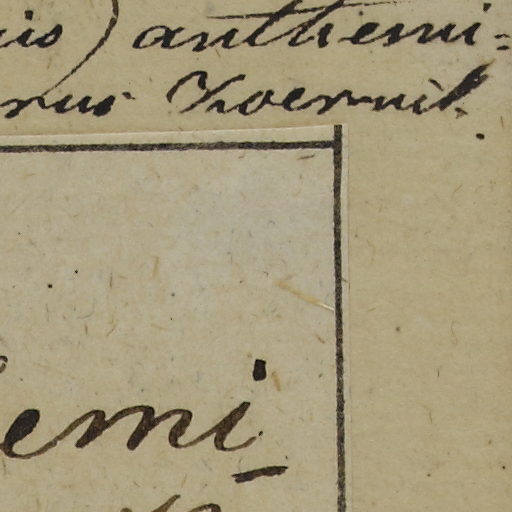 is) anthemi=
rus Koernik.
emi